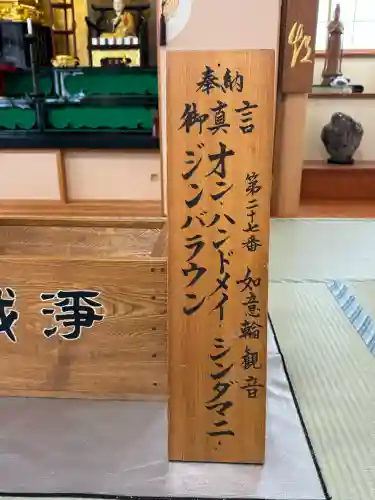 奉納
第二十七番 如意輪観音
御真言
オン・ハンドメイ・シンダマニ・
ジンバラウン
浄